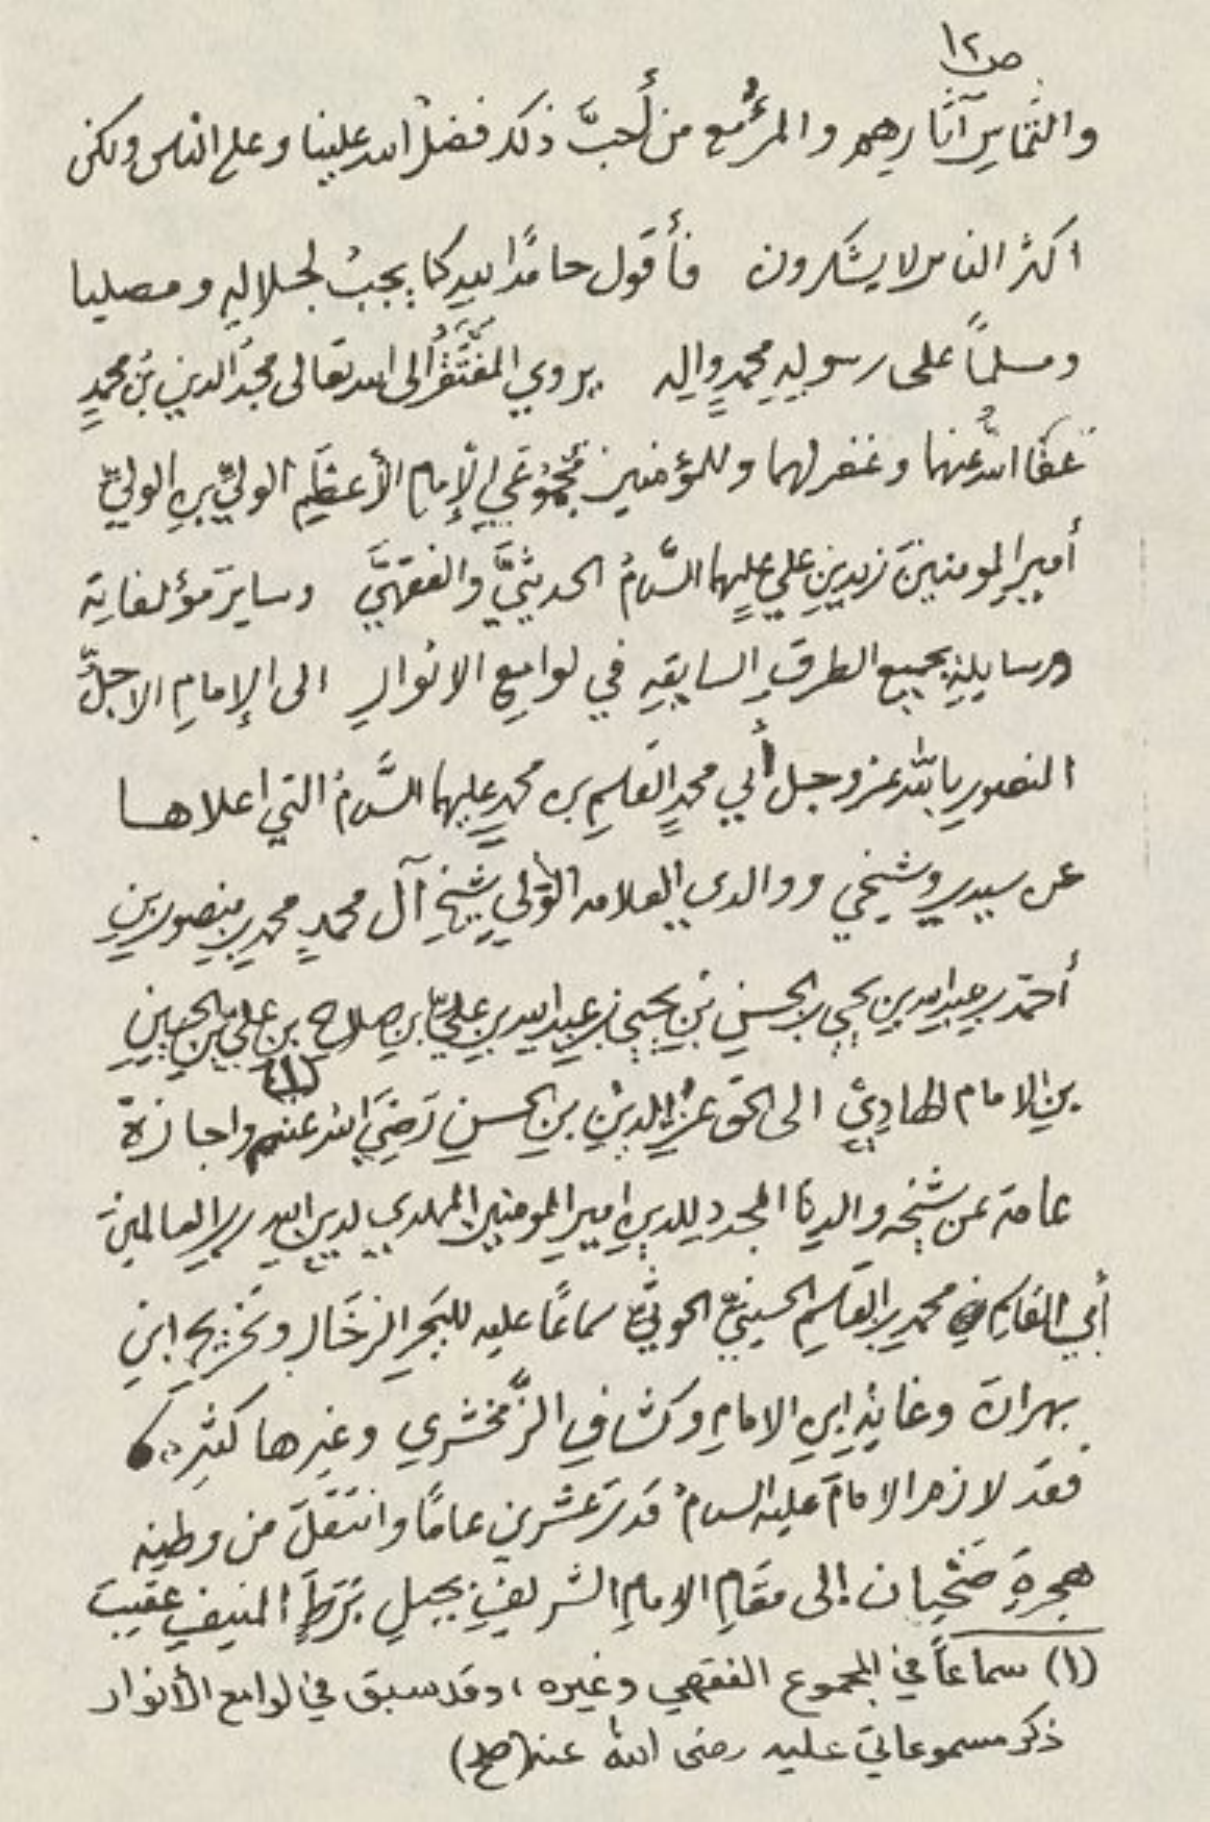 ص ١٢
والتماس آثارهم والمرءُ مع من أحبَّ ذلك فضلُ الله علينا وعلى الناس ولكن
اكثر الناس لا يشكرون فأقول حامدًا لله كما يجبُ لجلاله ومصليا
ومسلمًا على رسوله محمدٍ وآله يروي المفتقرُ الى الله تعالى مجدُ الدين بن محمدٍ
عفا اللهُ عنهما وغفر لهما وللمؤمنين مجموعَي الإمام الأعظم الوليِّ بن الوليِّ
أمير المومنين زيدِ بن علي عليهما السَّلامُ الحديثيَّ والفقهيَّ وسايرَ مؤلفاته
ورسايله بجميع الطرق السابقه في لوامع الانوار الى الإمام الاجلّ
المنصور بالله عز وجل أبي محمدٍ القاسم بن محمدٍ عليهما السَّلامُ التي اعلاها
عن سيدي وشيخي ووالدي العلامه الوليِّ شيخِ آل محمدٍ محمدِ بن منصور بن
أحمدَ بن عبدِالله بن يحيى بن الحسنِ بن يحيى بن عبدالله بن عليِّ بن صلاح بن عليِّ بن الحسين
بن الامام الهادي الى الحق عزِّ الدين بن الحسن رَضِيَ الله عنهم (١) واجازةً
عامة عن شيخه والدنا المجدد للدين امير المومنين المهدي لدين الله رب العالمين
أبي القاسم محمدِ بن القاسم الحسينيِّ الحوثيِّ سماعًا عليه للبحر الزخار وتخريج ابنِ
بهران وغايةِ ابن الامام وكشاف الزَّمخشري وغيرها كثير
فقد لازم الامامَ عليه السلامُ قدرَ عشرين عامًا وانتقلَ من وطنه
هجرةِ ضَحْيان إلى مقام الامام الشريف بجبل بَرَط المنيف عقيب
(١) سماعاً في المجموع الفقهي وغيره، وقد سبق في لوامع الأنوار
ذكر مسموعاتي عليه رضي الله عنه (صح)